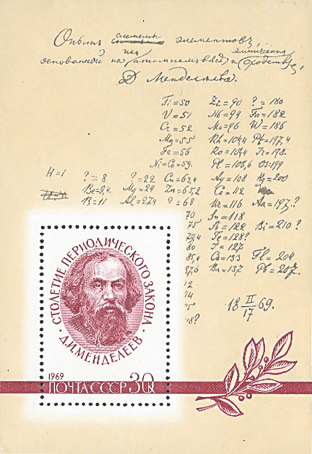 Опытъ системы элементовъ,
основанной на ихъ атомномъ вѣсѣ и химическомъ сходствѣ,
Д. Менделѣева.
Ti=50 Zr=90 ?=180
V=51 Nb=94 Ta=182
Cr=52 Mo=96 W=186
Rh=104,4 Pt=197,4
Fe=56 Ru=104, Ir=198.
Ni=Co=59. Pl=106,6 Os=199
H=1 ?=8 ?=22 Cu=63,4 Ag=108 Hg=200
Be=9,4. Mg=24 Zn=65,2 Cd=112
B=11 Al=27,4 ?=68 Ur=116 Au=197?
70 Sn=118
75 Sb=122 Bi=210?
79,4 Te=128?
80 I=127
85,4 Cs=133 Tl=204
87,6 Ba=137 Pb=207.
18 II/17 69.
СТОЛЕТИЕ ПЕРИОДИЧЕСКОГО ЗАКОНА
Д.И.МЕНДЕЛЕЕВ
1969
ПОЧТА СССР 30К